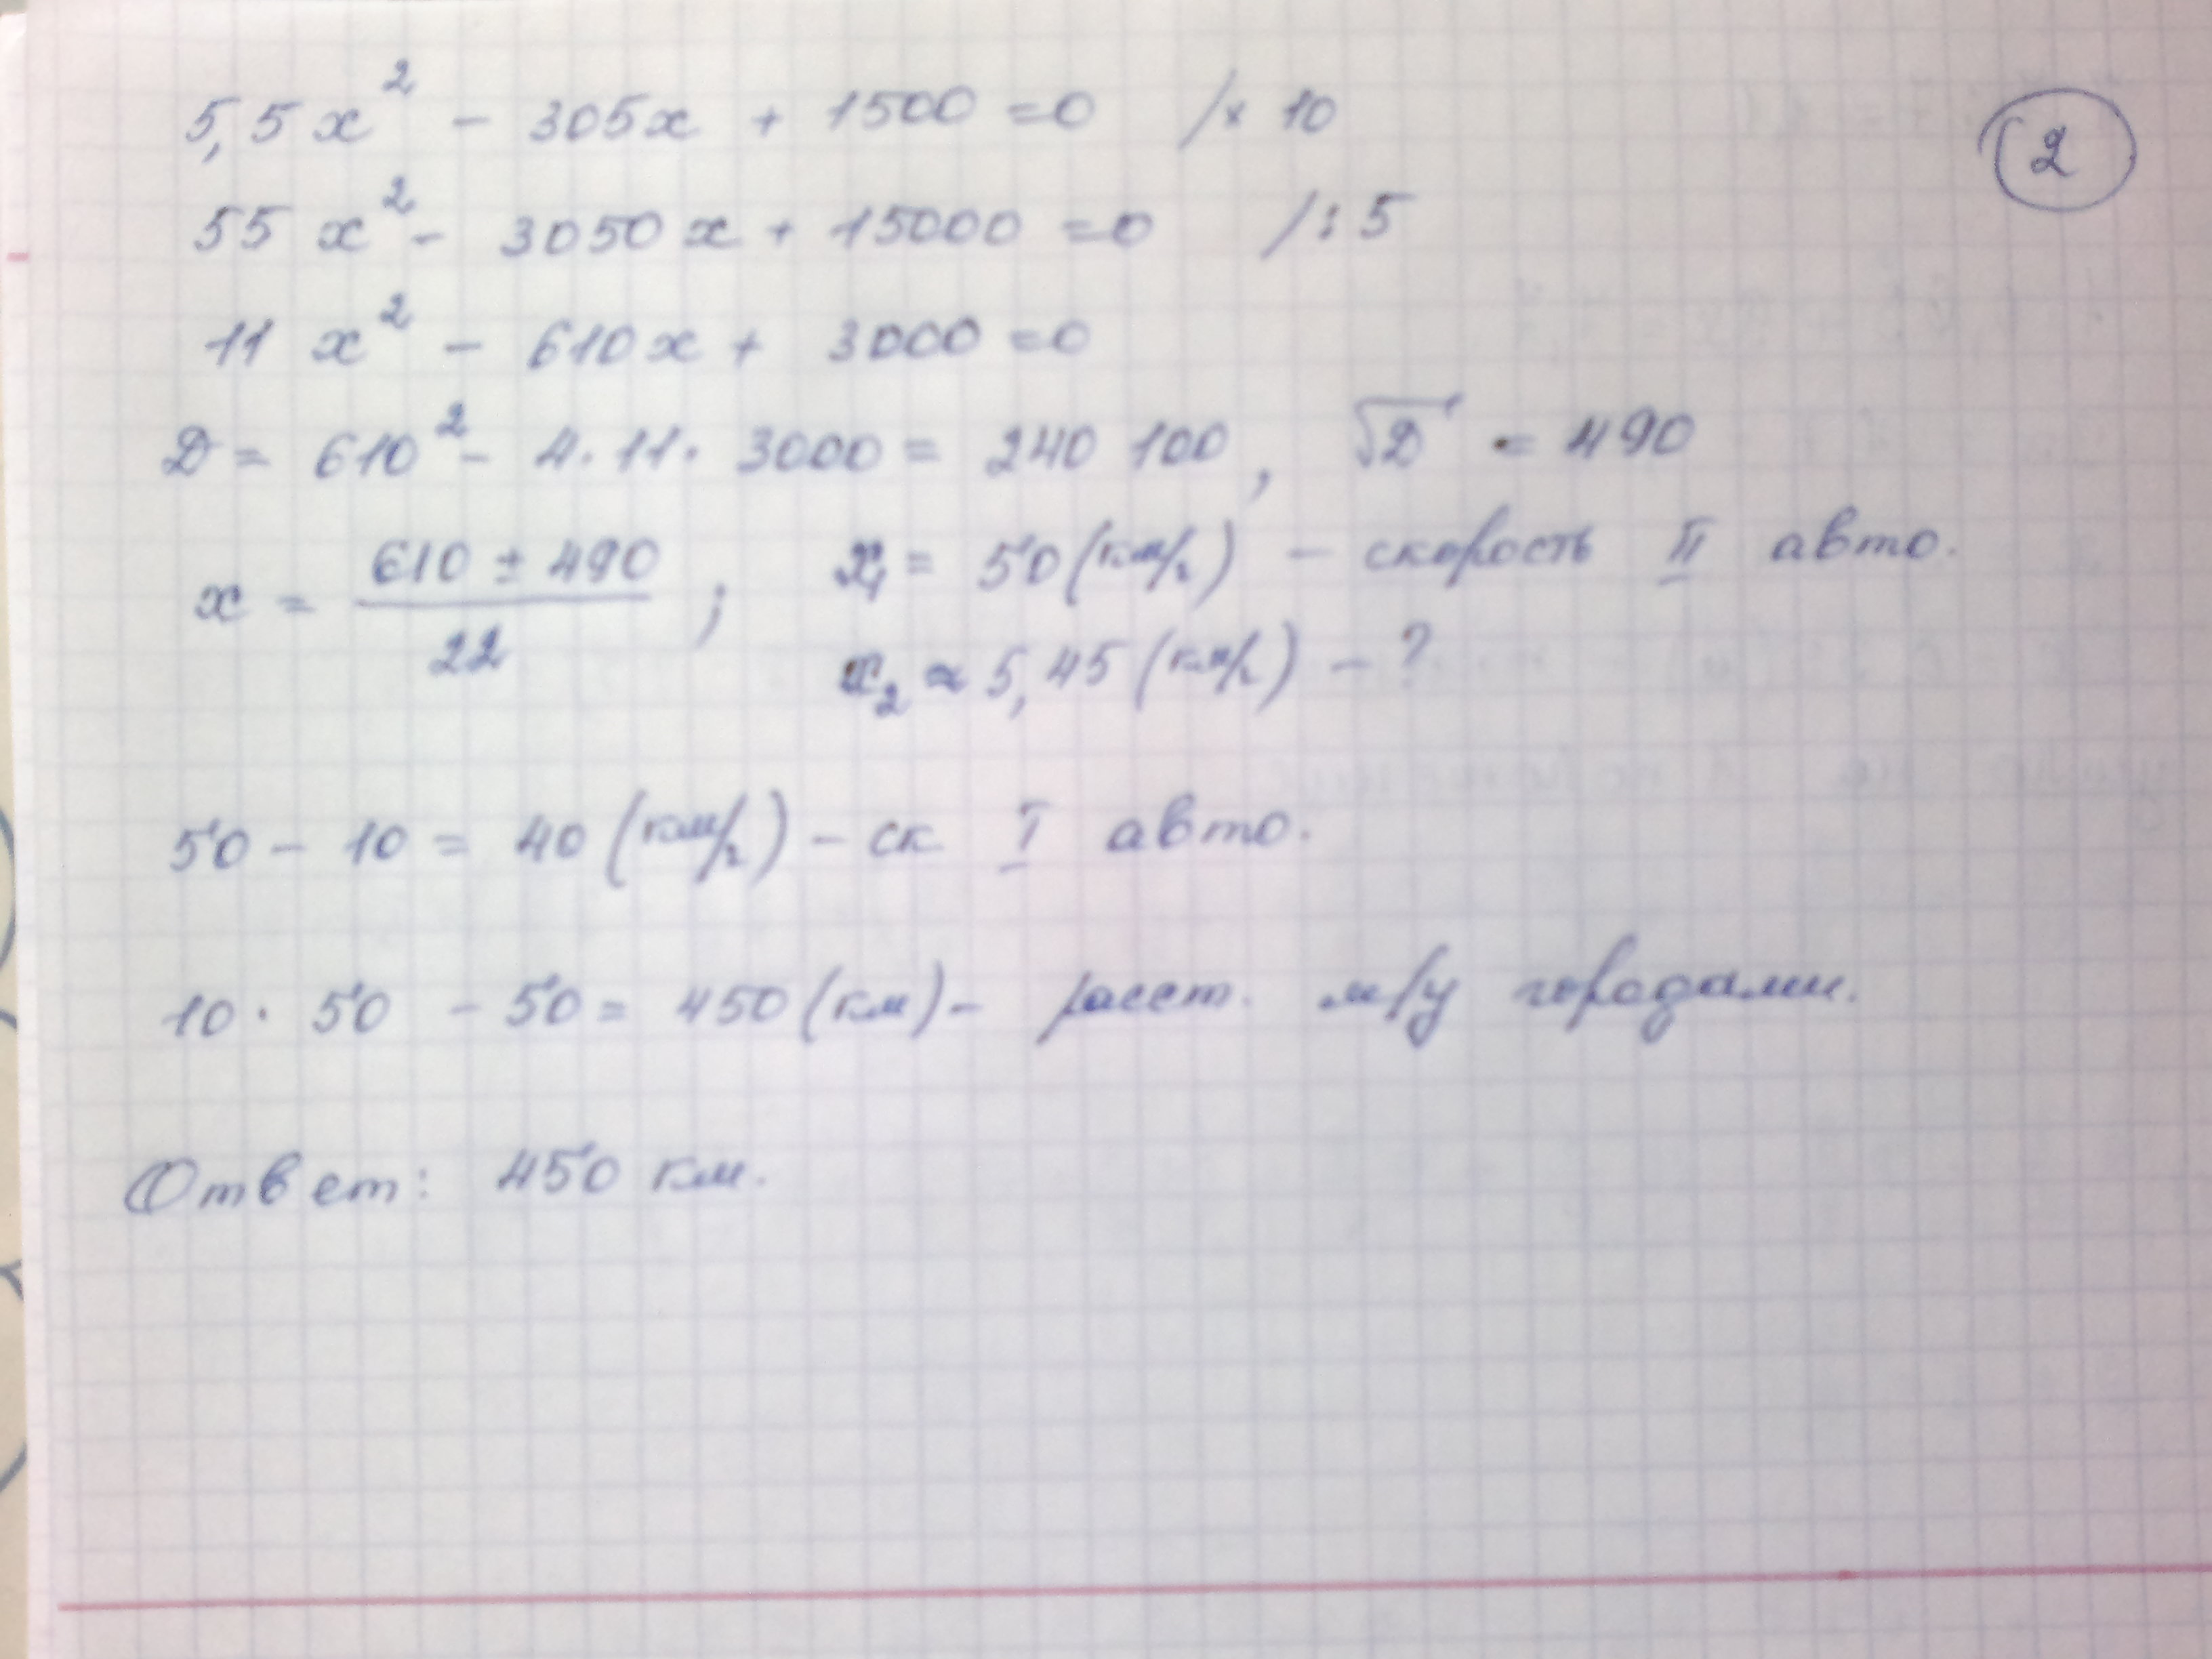 5,5x² - 305x + 1500 = 0 /× 10
2
55x² - 3050x + 15000 = 0 /: 5
11x² - 610x + 3000 = 0
D = 610² - 4·11·3000 = 240 100, √D = 490
x = (610 ± 490)/22; x₁ = 50 (км/ч) - скорость II авто.
x₂ ≈ 5,45 (км/ч) - ?
50 - 10 = 40 (км/ч) - ск I авто.
10 · 50 - 50 = 450 (км) - расст. м/у городами.
Ответ: 450 км.